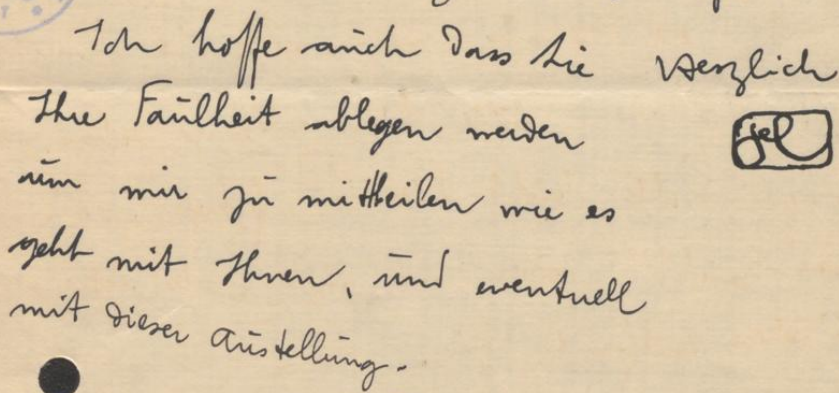 Ich hoffe auch Dass Sie
Ihre Faulheit ablegen werden
um mir zu mittheilen wie es
geht mit Ihnen, und eventuell
mit dieser Austellung.
Herzlich